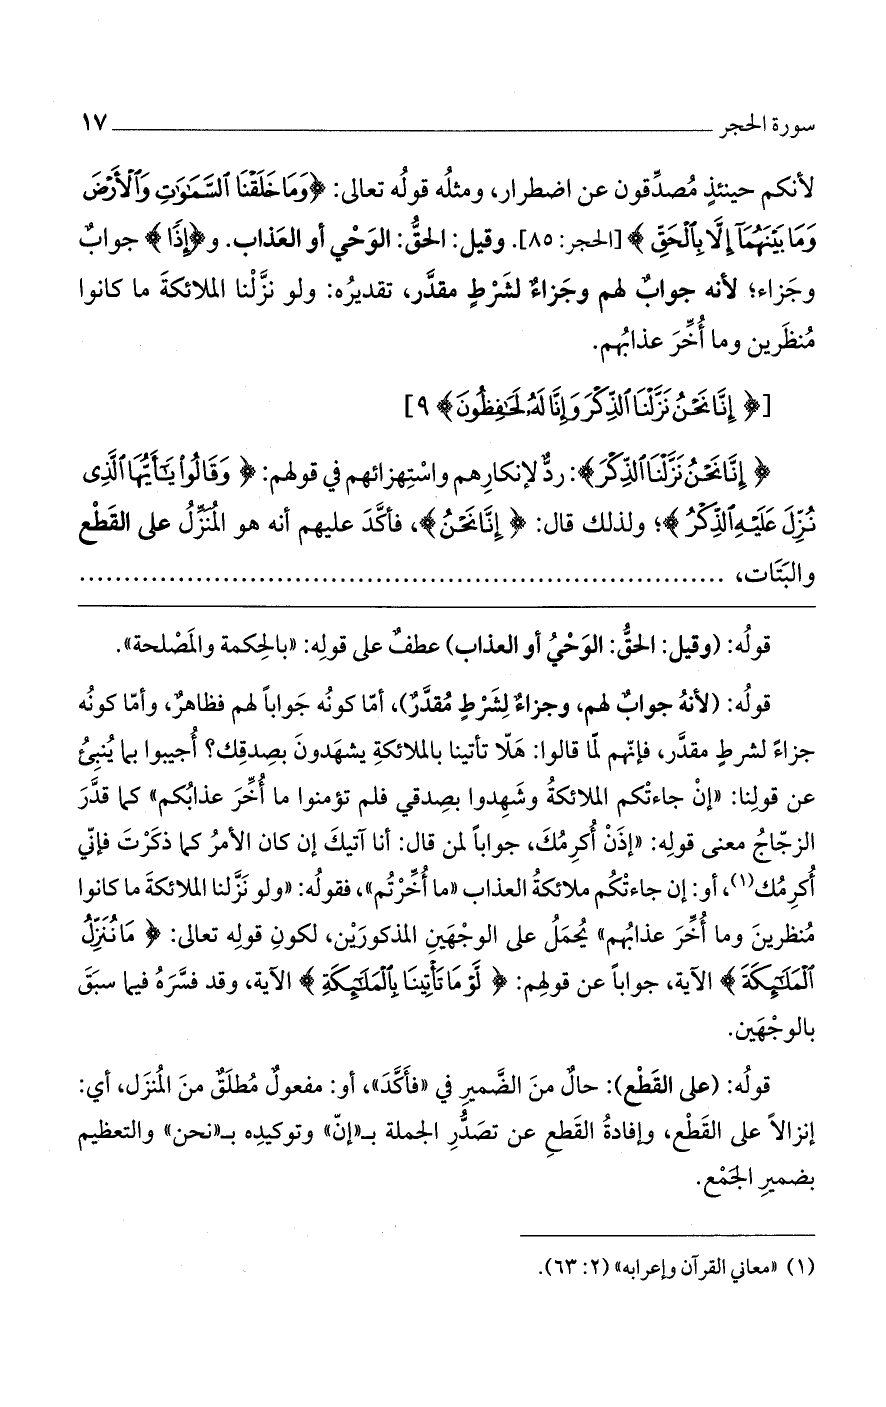 سورة الحجر ١٧
لأنكم حينئذٍ مُصدِّقون عن اضطرار، ومثلُه قولُه تعالى: ﴿وَمَا خَلَقْنَا ٱلسَّمَٰوَٰتِ وَٱلْأَرْضَ
وَمَا بَيْنَهُمَآ إِلَّا بِٱلْحَقِّ﴾ [الحجر: ٨٥]. وقيل: الحقُّ: الوَحْي أو العَذاب. و﴿إِذًا﴾ جوابٌ
وجَزاء؛ لأنه جوابٌ لهم وجَزاءٌ لشَرْطٍ مقدَّر، تقديرُه: ولو نزَّلْنا الملائكةَ ما كانوا
مُنظَرين وما أُخِّرَ عذابُهم.
[﴿إِنَّا نَحْنُ نَزَّلْنَا ٱلذِّكْرَ وَإِنَّا لَهُۥ لَحَٰفِظُونَ﴾ ٩]
﴿إِنَّا نَحْنُ نَزَّلْنَا ٱلذِّكْرَ﴾: ردٌّ لإنكارِهم واسْتِهزائهم في قولهم: ﴿وَقَالُوا۟ يَٰٓأَيُّهَا ٱلَّذِى
نُزِّلَ عَلَيْهِ ٱلذِّكْرُ﴾؛ ولذلك قال: ﴿إِنَّا نَحْنُ﴾، فأكَّدَ عليهم أنه هو المُنَزِّلُ على القَطْع
والبَتَات، ........................................................................
قولُه: (وقيل: الحقُّ: الوَحْيُ أو العذاب) عطفٌ على قولِه: «بالحِكمة والمَصْلحة».
قولُه: (لأنهُ جوابٌ لهم، وجزاءٌ لِشَرْطٍ مُقدَّرٌ)، أمّا كونُه جَواباً لهم فظاهرٌ، وأمّا كونُه
جزاءً لشرطٍ مقدَّر، فإنّهم لمّا قالوا: هَلّا تأتينا بالملائكةِ يشهَدونَ بصِدقِك؟ أُجيبوا بما يُنبِئُ
عن قولِنا: «إنْ جاءتْكم الملائكةُ وشَهِدوا بصِدقي فلم تؤمنوا ما أُخِّرَ عذابُكم» كما قدَّرَ
الزجّاجُ معنى قولِه: «إذَنْ أُكرِمُكَ، جواباً لمن قال: أنا آتيكَ إن كان الأمرُ كما ذكَرْتَ فإنّي
أُكرِمُك(١)، أو: إن جاءتْكُم ملائكةُ العذاب «ما أُخِّرْتُم»، فقولُه: «ولو نَزَّلنا الملائكةَ ما كانوا
مُنظرينَ وما أُخِّرَ عذابُهم» يُحمَلُ على الوجْهَينِ المذكورَيْن، لكونِ قولِه تعالى: ﴿مَا نُنَزِّلُ
ٱلْمَلَٰٓئِكَةَ﴾ الآية، جواباً عن قولِهم: ﴿لَّوْ مَا تَأْتِينَا بِٱلْمَلَٰٓئِكَةِ﴾ الآية، وقد فسَّرَهُ فيما سبَقَ
بالوجْهَين.
قولُه: (على القَطْع): حالٌ منَ الضَّميرِ في «فأكَّدَ»، أو: مفعولٌ مُطلَقٌ منَ المُنزَل، أي:
إنزالاً على القَطْع، وإفادةُ القَطعِ عن تصَدُّرِ الجملة بـ«إنّ» وتوكيدِه بـ«نحن» والتعظيم
بضميرِ الجَمْع.
(١) «معاني القرآن وإعرابه» (٢: ٦٣).